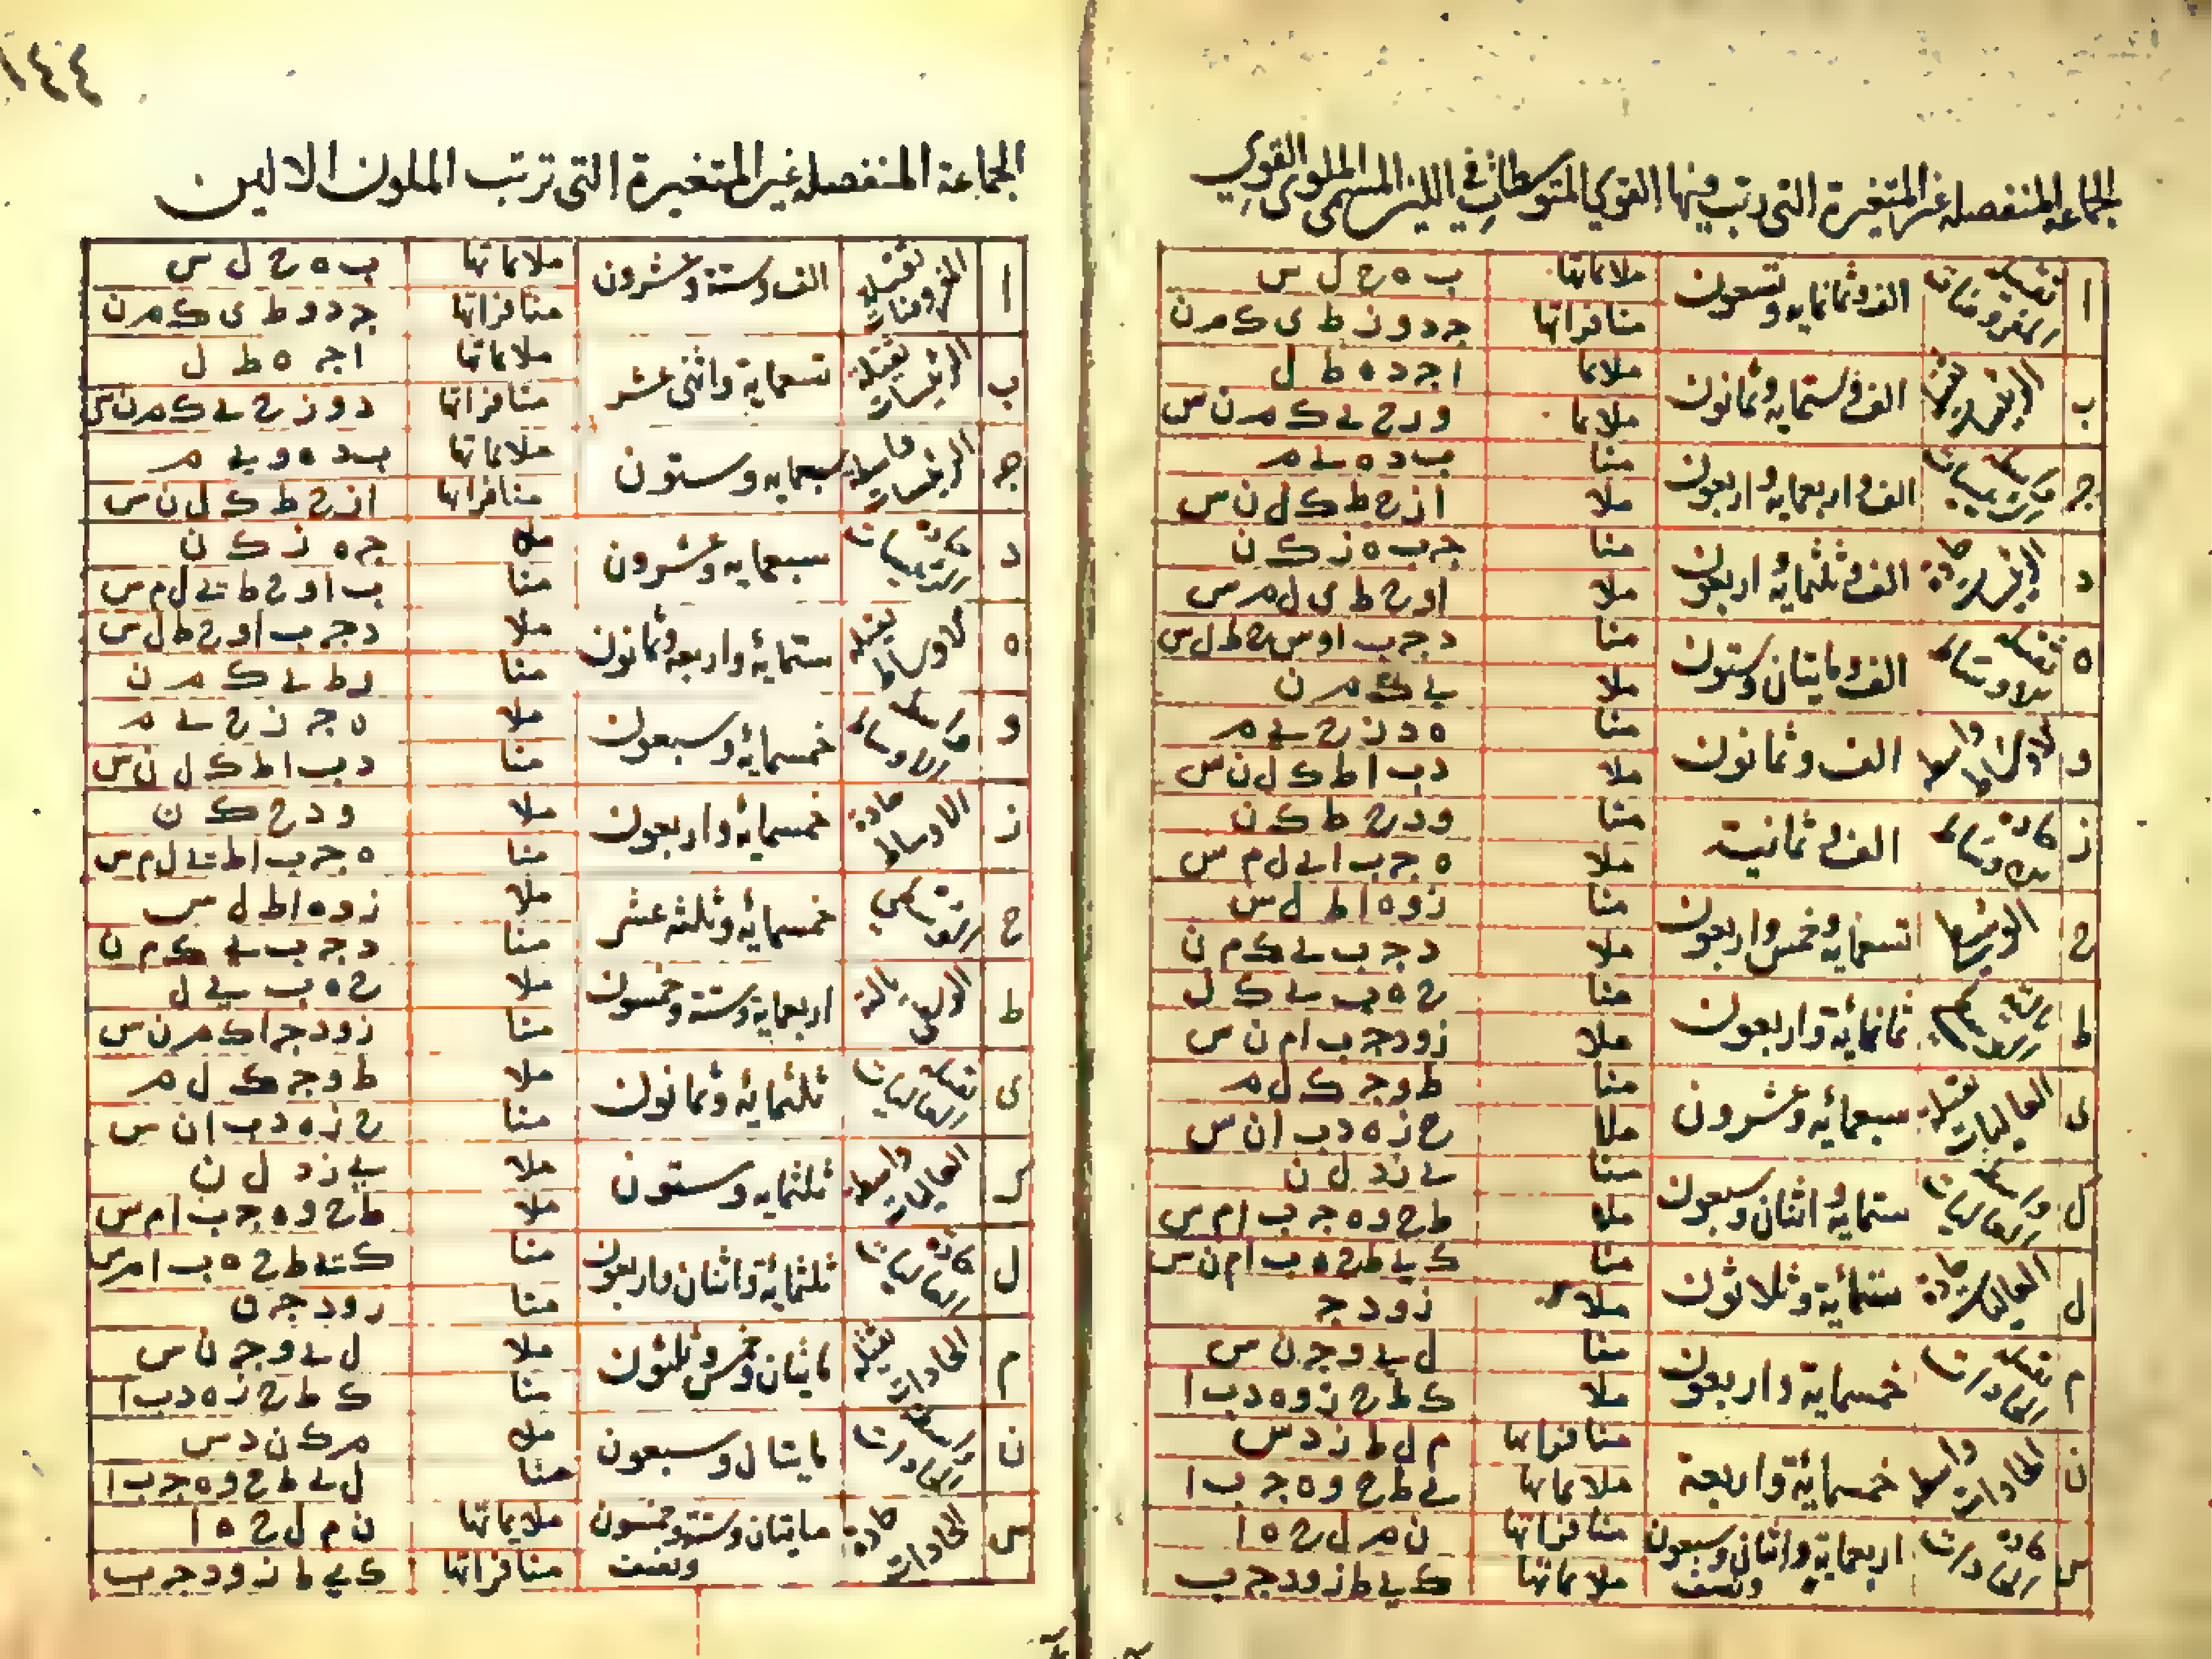 الجماعة المنفصله غير المتغيرة التى رتب فيها القوي المتوسطات في اللين المسمى الملوى القوي
ا ثقيلة المفروضات الف وثمانمايه وتسعون ملائماتها ب ه ح ل س
منافراتها ج د و ز ط ى ك م ن
ب الف وستمايه وثمانون ملائما ا ج د ه ط ل
ملائما و ز ح ي ك م ن س
ج الف و اربعمايه و اربعون منا ب د ه ي م
ملا ا ز ح ط ك ل ن س
د الف و ثلثمايه و اربعون منا ج ب ه ز ك ن
ملا ا و ح ط ى ل م س
ه الف و مايتان وستون منا د ج ب ا و س ح ط ل س
ملا ي ك م ن
و الف وثمانون منا ه د ز ح ي م
ملا د ب ا ط ك ل ن س
ز حادة الف و ثمانية منا و د ح ط ك ن
ملا ه ج ب ا ي ل م س
ح تسعمايه وخمس واربعون منا ز و ه ا ط ل س
ملا د ج ب ي ك م ن
ط ثمانمائة واربعون منا ح ه ب ي ك ل
ملا ز و د ج ب ا م ن س
ى ثقيلة العاليات سبعمائه وعشرون منا ط و ج ك ل م
ملا ح ز ه د ب ا ن س
ل واسطة العاليات ستمايه و اثنان وسبعون منا ي ز د ل ن
ملا ط ح و ه ج ب ا م س
ل العاليات حادة ستمائة وثلاثون منا ك ي ط ح ه ب ا م ن س
ملا ز و د ج
م ثقيلة الحادات خمسماية واربعون منا ل ي و ج ن س
ملا ك ط ح ز و ه د ب ا
ن الحادات واسطة خمسمائة واربعة منافراتها م ل ط ز د س
ملائماتها ي ط ح و ه ج ب ا
س حادة الحادات اربعماية واثنان وسبعون ونصف منافراتها ن م ل ح ه ا
ملائماتها ك ي ط ز و د ج ب
١٤٤
الجماعة المنفصله غير المتغيرة التى ترتب الملون الالين
ا ثقيلة المفروضات الف وستة وعشرون ملائماتها ب ه ح ل س
منافراتها ج د و ط ى ك م ن
ب ثقيلة الرئيسات تسعماية واثنى عشر ملائماتها ا ج ه ط ل
منافراتها د و ز ح ي ك م ن س
ج الرئيسات سبعمايه وستون ملائماتها ب د ه و ي م
منافراتها ا ز ح ط ك ل ن س
د حادة الرئيسات سبعمايه وعشرون ملا ج ه ز ك ن
منا ب ا و ح ط ي ل م س
ه ثقيلة الاوساط ستمائه واربعه وثمانون ملا د ج ب ا و ح ط ل س
منا ط ي ك م ن
و واسطة الاوساط خمسمائه وسبعون ملا ه ج ز ح ي م
منا د ب ا ط ك ل ن س
ز الاوساط حادة خمسمائه واربعون ملا و د ح ك ن
منا ه ج ب ا ط ي ل م س
ح خمسمائه وثلثه عشر ملا ز د ه ا ط ل س
منا د ج ب ي ك م ن
ط اربعمايه وستة وخمسون ملا ح ه ب ي ل
منا ز و د ج ا ك م ن س
ى ثقيلة العاليات ثلثمائه وثمانون ملا ط و ج ك ل م
منا ح ز ه د ب ا ن س
ك العاليات واسطة ثلثمايه وستون ملا ي ز د ل ن
ملا ط ح و ه ج ب ا م س
ل حادة العاليات ثلثمائة واثنان واربعون منا ك ي ط ح ه ب ا م س
منا ز و د ج ن
م الحادات ثقيلة مايتان وخمس وثلثون ملا ل ي و ج ن س
منا ك ط ح ز ه د ب ا
ن واسطة الحادات مايتا ل وسبعون ملا م ك ن د س
منا ل ي ط ح و ه ج ب ا
س الحادات حادة مايتان وستة وخمسون ونصف ملايماتها ن م ل ح ه ا
منافراتها ك ي ط ز و د ج ب